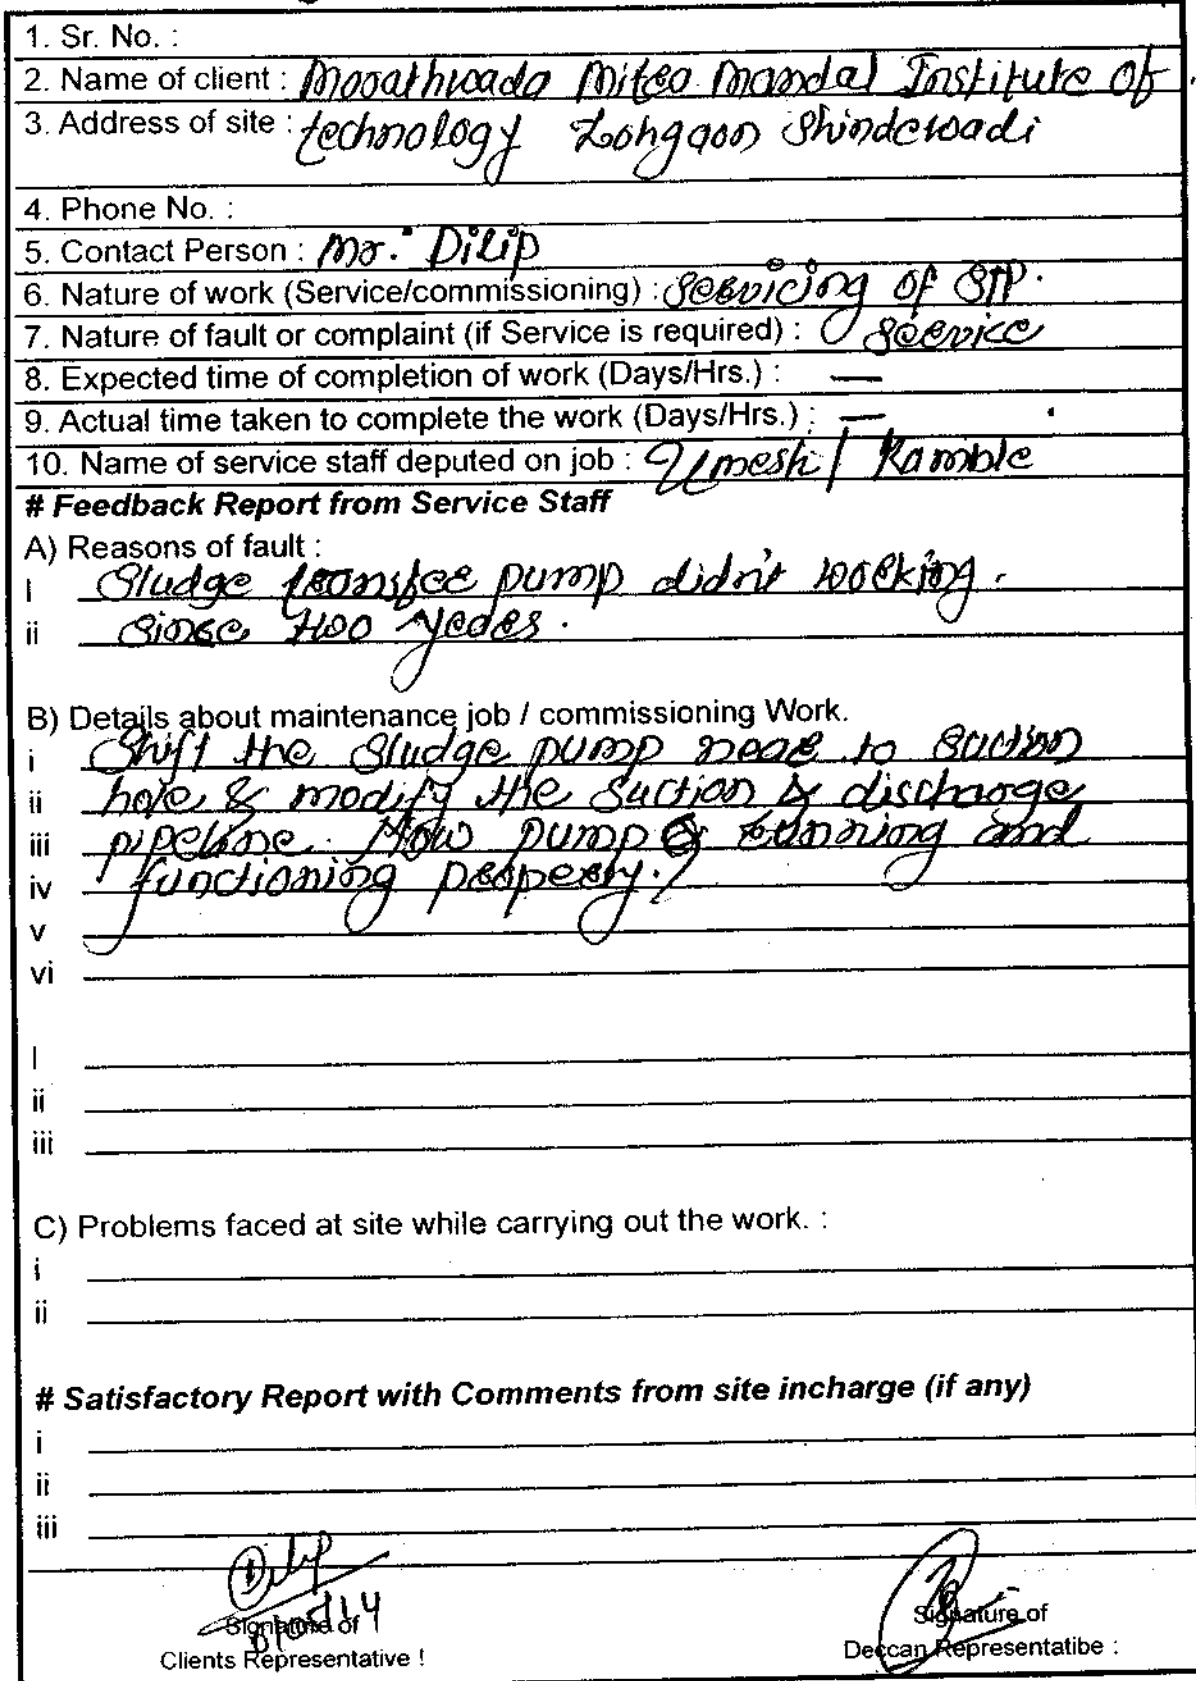 1. Sr. No. :
2. Name of client : Marathwada Mitra Mandal Institute of
3. Address of site : technology Lohgaon Shindewadi
4. Phone No. :
5. Contact Person : Mr. Dilip
6. Nature of work (Service/commissioning) : Servicing of STP.
7. Nature of fault or complaint (if Service is required) : Service
8. Expected time of completion of work (Days/Hrs.) : —
9. Actual time taken to complete the work (Days/Hrs.) : —
10. Name of service staff deputed on job : Umesh / Kamble
# Feedback Report from Service Staff
A) Reasons of fault :
I Sludge transfer pump didn't working.
ii Since two years.
B) Details about maintenance job / commissioning Work.
i Shift the Sludge pump near to Suction
ii hole & modify the Suction & discharge
iii pipeline. Now pump running and
iv functioning properly.
v
vi
I
ii
iii
C) Problems faced at site while carrying out the work. :
i
ii
# Satisfactory Report with Comments from site incharge (if any)
i
ii
iii
Dilip
Signature of
Clients Representative !
Signature of
Deccan Representatibe :